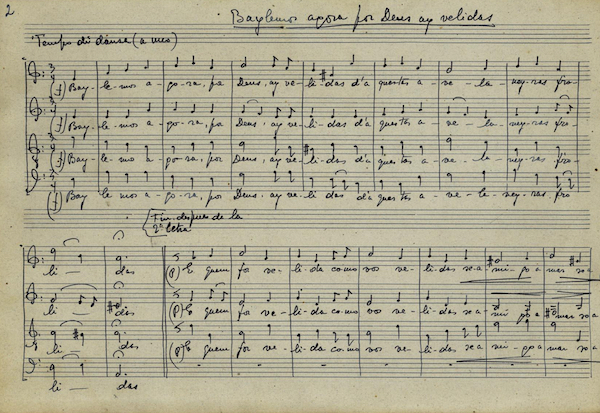 2
Baylemos agora por Deus ay velidas
Tempo di danse (a uno)
(f) Bay-le-mos a-go-ra, por Deus, ay ve-li-das d'a questas a-ve-la-neyras fro-
(f) Bay-le-mos a-go-ra, por Deus, ay ve-li-das d'a questas a-ve-la-neyras fro-
(f) Bay-le-mos a-go-ra, por Deus, ay ve-li-das d'a questas a-ve-la-neyras fro-
(f) Bay-le-mos a-go-ra, por Deus, ay ve-li-das d'a questas a-ve-le-neyras, fro-
Fin. despues de la
2ª letra
li-das (p) E quem for ve-li-da como vos ve-li-das sea
li-das (p) E quem for ve-li-da como vos ve-li-das sea
li-das (p) E quem for ve-li-da como vos ve-li-das sea
li-das